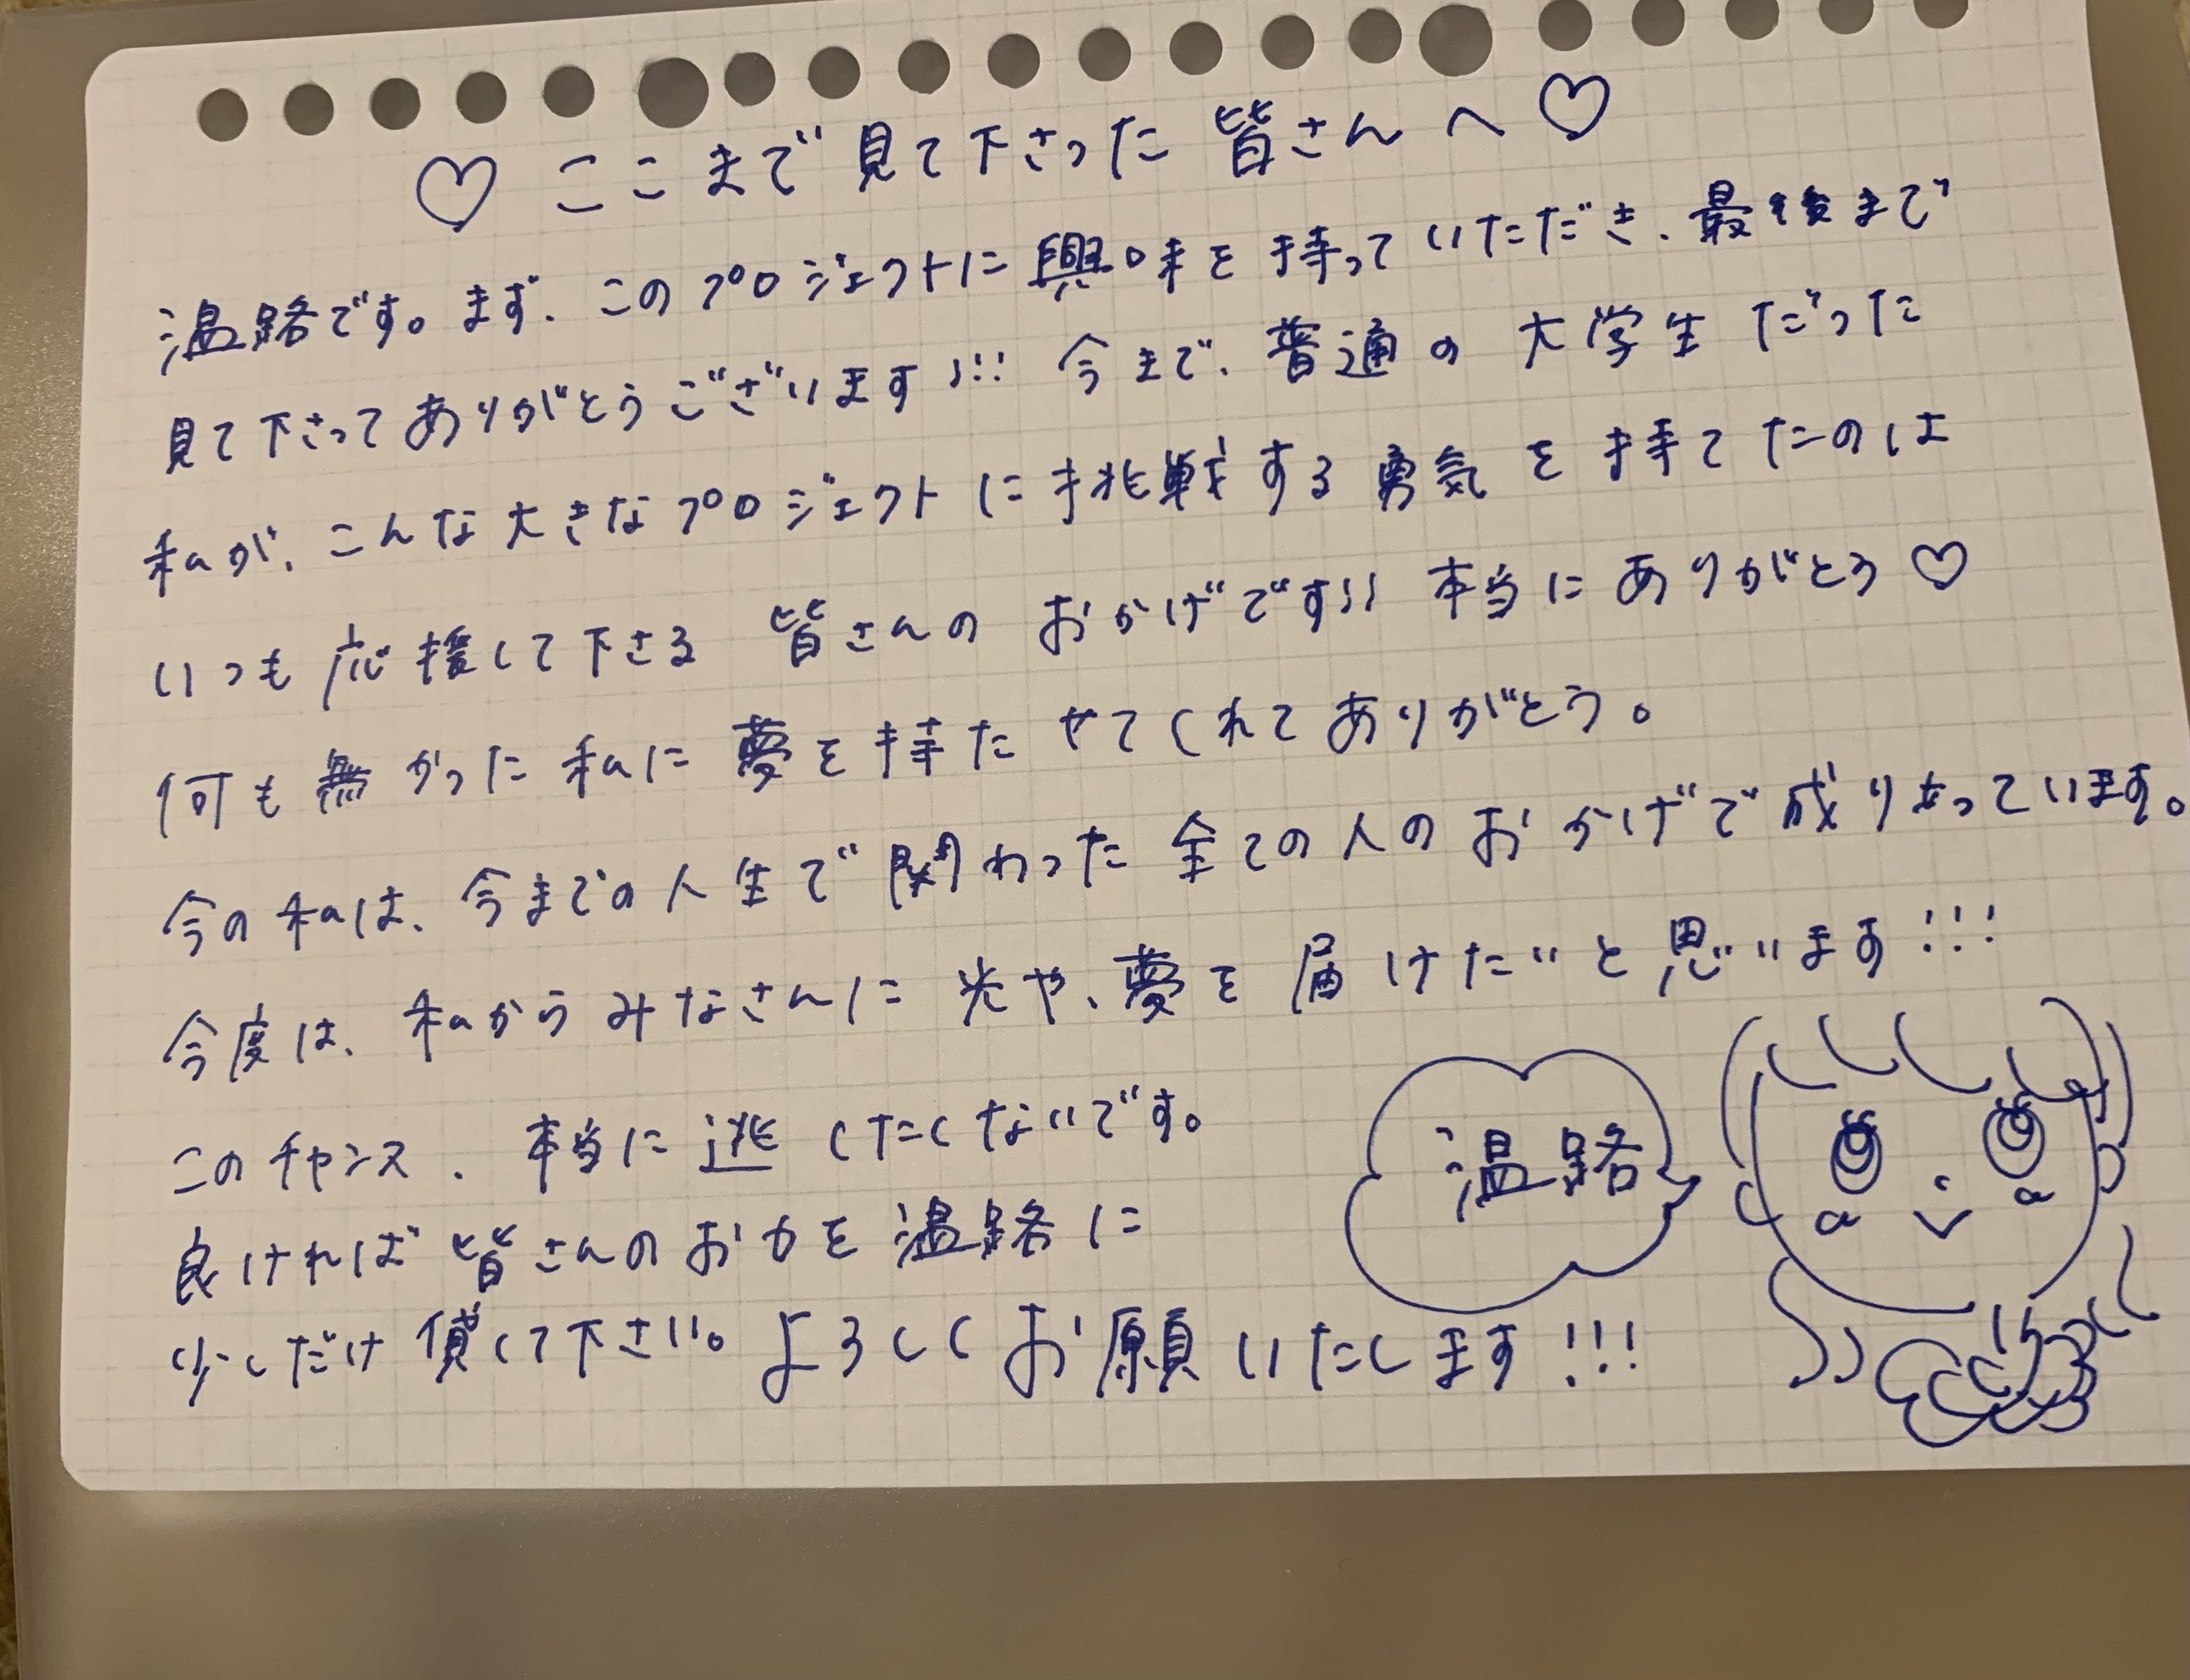 ♡ ここまで見て下さった皆さんへ♡
温路です。まず、このプロジェクトに興味を持っていただき、最後まで
見て下さってありがとうございます!!! 今まで、普通の大学生だった
私が、こんな大きなプロジェクトに挑戦する勇気を持てたのは
いつも応援して下さる 皆さんの おかげです!! 本当にありがとう♡
何も無かった私に夢を持たせてくれてありがとう。
今の私は、今までの人生で関わった全ての人のおかげで成りたっています。
今度は、私からみなさんに光や、夢を届けたいと思います!!!
このチャンス、本当に逃したくないです。
良ければ皆さんのお力を温路に
少しだけ償して下さい。よろしくお願いいたします!!!
温路